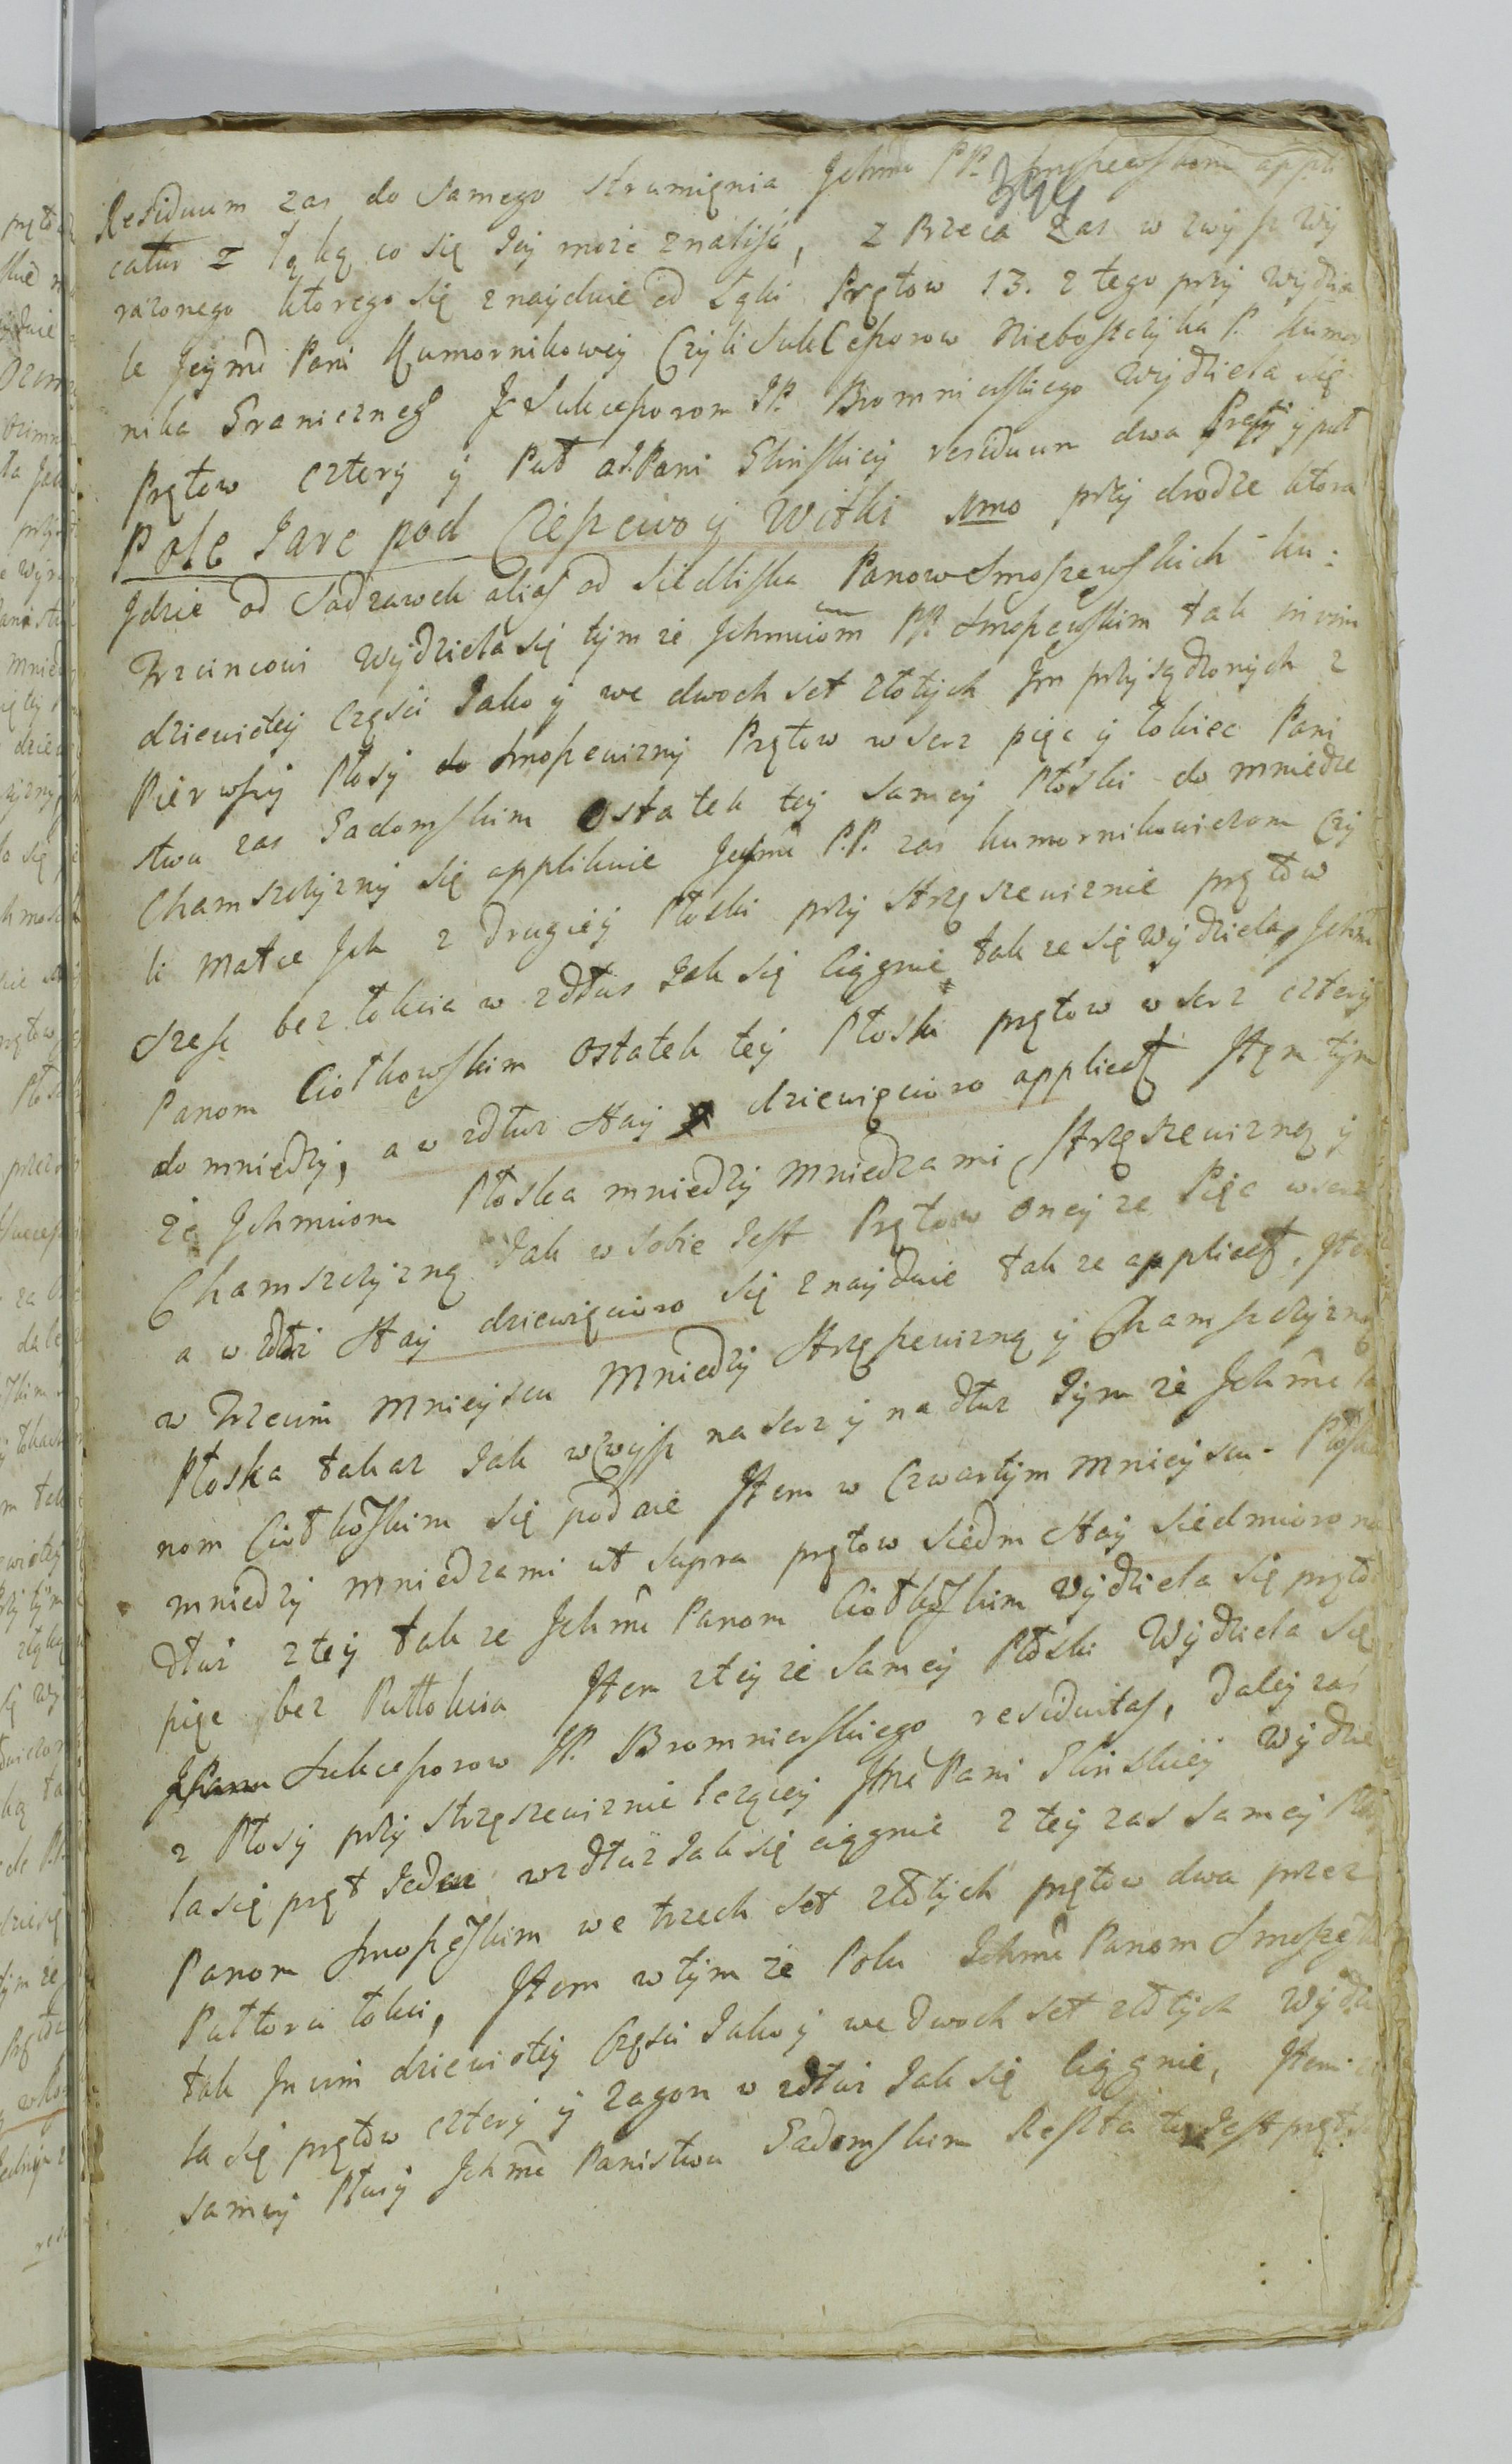 Residuum zas do samego strumięnia Jchmć PP. Smoszewskim appli
catur z Łąką co się Jey może znaliść, z Brzeca zas w zwysz wy
razonego ktorego się znayduie od Łąki Prętow 13. z tego przy wydzia
le Jeymć Pani Kumornikowey Czyli Sukceszorow Nieboszczyka P. Kumor
nika Granicznego Sukceszorom JP. Bromnierskiego wydziela się
Prętow cztery y Puł a J.Pani Glinskiey residuum dwa Pręty y puł
Pole Jare pod Ciepewo y Witki 1mo przy drodze ktora
Jdzie od Sadzawek alias od Siedliska Panow Smoszewskich ku
Trzcincowi wydziela się tym ze Jchmciom PP. Smoszewskim tak in vim
dziewiątey Częsci Jako y we dwoch set złotych Jm przysądzonych z
Pierwszy Płosy do Smoszewizny Prętow wserz pięc y łokiec Pani
stwu zas Sadomskim Ostatek tey samey Płoski do mniedze
Chamszczyzny się applikuie Jchmć P.P. zas kumornikowiczom Czy
li Matce Jch z drugiey Płoski przy Strzęszewiznie prętow
szesc bez łokcia w zdłus Jak się Ciągnie tak ze się wydziela, Jchm
Panom Ciotkowskim Ostatek tey Płoski prętow wserz cztery
do mniedzy, a w zdłuz Stay dziewięcioro applicat Item tym
że Jchmciom Płoska mniedzy mniedzami Strzęszewizną y
Chamszczyzną Jak w sobie Jest Prętow oney ze Pięc wserz
a w zdłuz Stay dziewięcioro się znayduie tak ze applicat, Item
w Trzecim mnieyscu mniedzy Strzęszewizną y Chamszczyzną
Płoska takaz Jak wzwysz naserz y nadłuz Tym że Jchmć Pa
nom Ciotkoskim się podaie Item w Czwartym mnieyscu Płoska
mniedzy mniedzami ut supra prętow siedm Stay siedmioro na
dłuż z tey tak ze Jchmć Panom Ciotkoskim wydziela się prętow
pięc bez Pułłokcia Item z tey że samey Płoski wydziela się
Sukceszorow JP. Bromnierskiego residuitas, daley zaś
z Płosy przy Strzęszewiznie lezącey Jmć Pani Glinskiey wydzie
la się pręt Jeden wzdłuż Jak się ciągnie z tey zas samey Pło
Panom Smoszeskim we trzech set złotych prętow dwa przez
Pułtora łokci, Item w tym że Polu Jchmć Panom Smoszesk
tak In vim dziewiątey Częsci Jako y we dwoch set złotych wydzie
la się prętow cztery y zagon w zdłuż Jak się Ciągnie, Item z
samey Płosy Jchmć Panistwu Sadomskim Reszta to Jest prętow